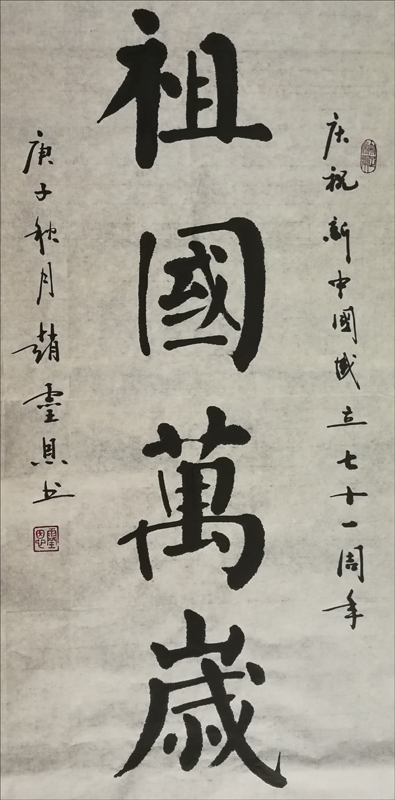 庆祝新中國成立七十一周年
祖國萬歲
庚子秋月趙靈恩书